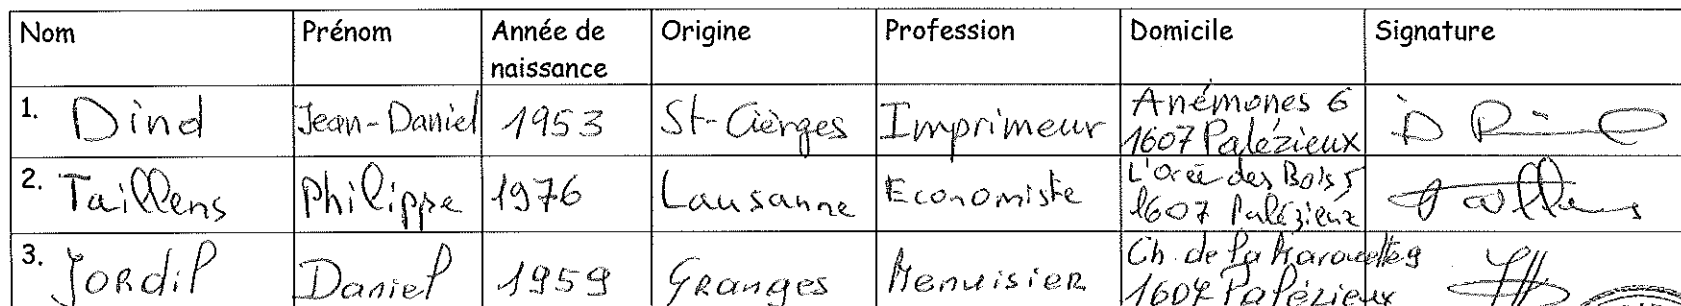 Nom Prénom Année de naissance Origine Profession Domicile Signature
1. Dind Jean-Daniel 1953 St-Cierges Imprimeur Anémones 6
1607 Palézieux
2. Taillens Philippe 1976 Lausanne Economiste L'orée des Bois 5
1607 Palézieux
3. Jordil Daniel 1959 Granges Menuisier Ch. de la
1607 Palézieux